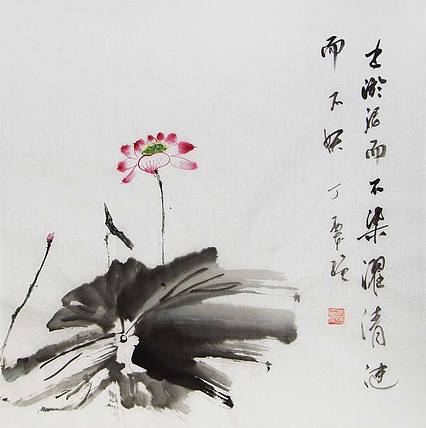 出淤泥而不染濯清涟
而不妖 丁